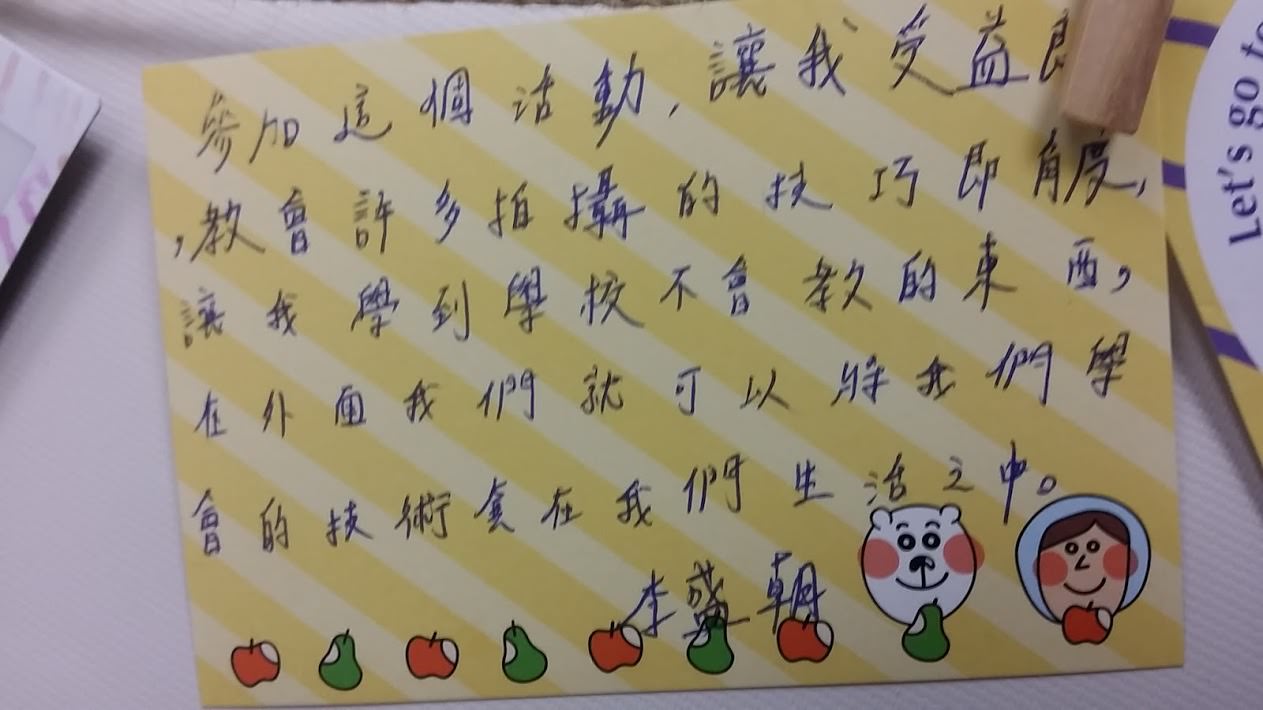 參加這個活動，讓我受益
，教會許多拍攝的技巧即角度，
讓我學到學校不會教的東西，
在外面我們就可以將我們學
會的技術食在我們生活之中。
李盛朝
Let's go to